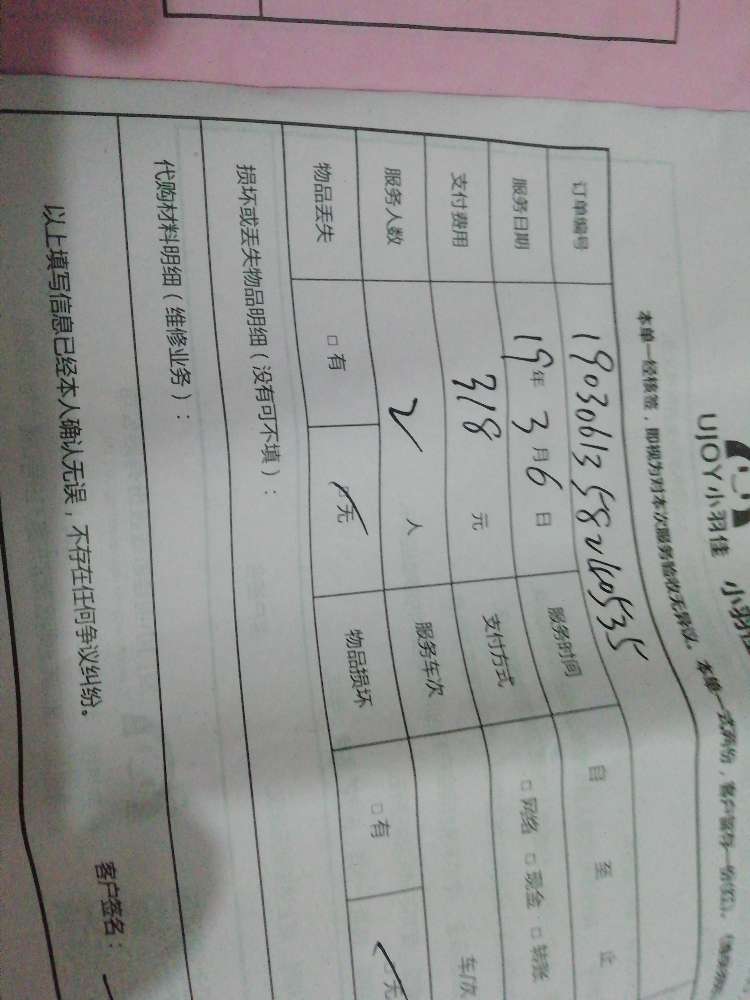 UJOY小羽佳 小羽佳
本单一经核签，即视为对本次服务验收无异议。本单一式两份，客户留存一份
订单编号 19030613582140535
服务日期 19年3月6日 服务时间 自 至 止
支付费用 318 元 支付方式 □网络 □现金 □转账
服务人数 2 人 服务车次 车/次
物品丢失 □有 ☑无 物品损坏 □有 ☑无
损坏或丢失物品明细（没有可不填）：
代购材料明细（维修业务）：
以上填写信息已经本人确认无误，不存在任何争议纠纷。
客户签名：